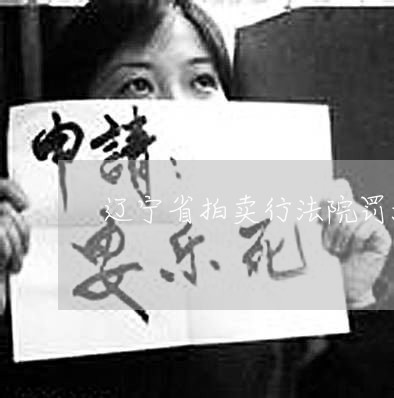 申請：
辽宁省拍卖行法院罚
安乐死